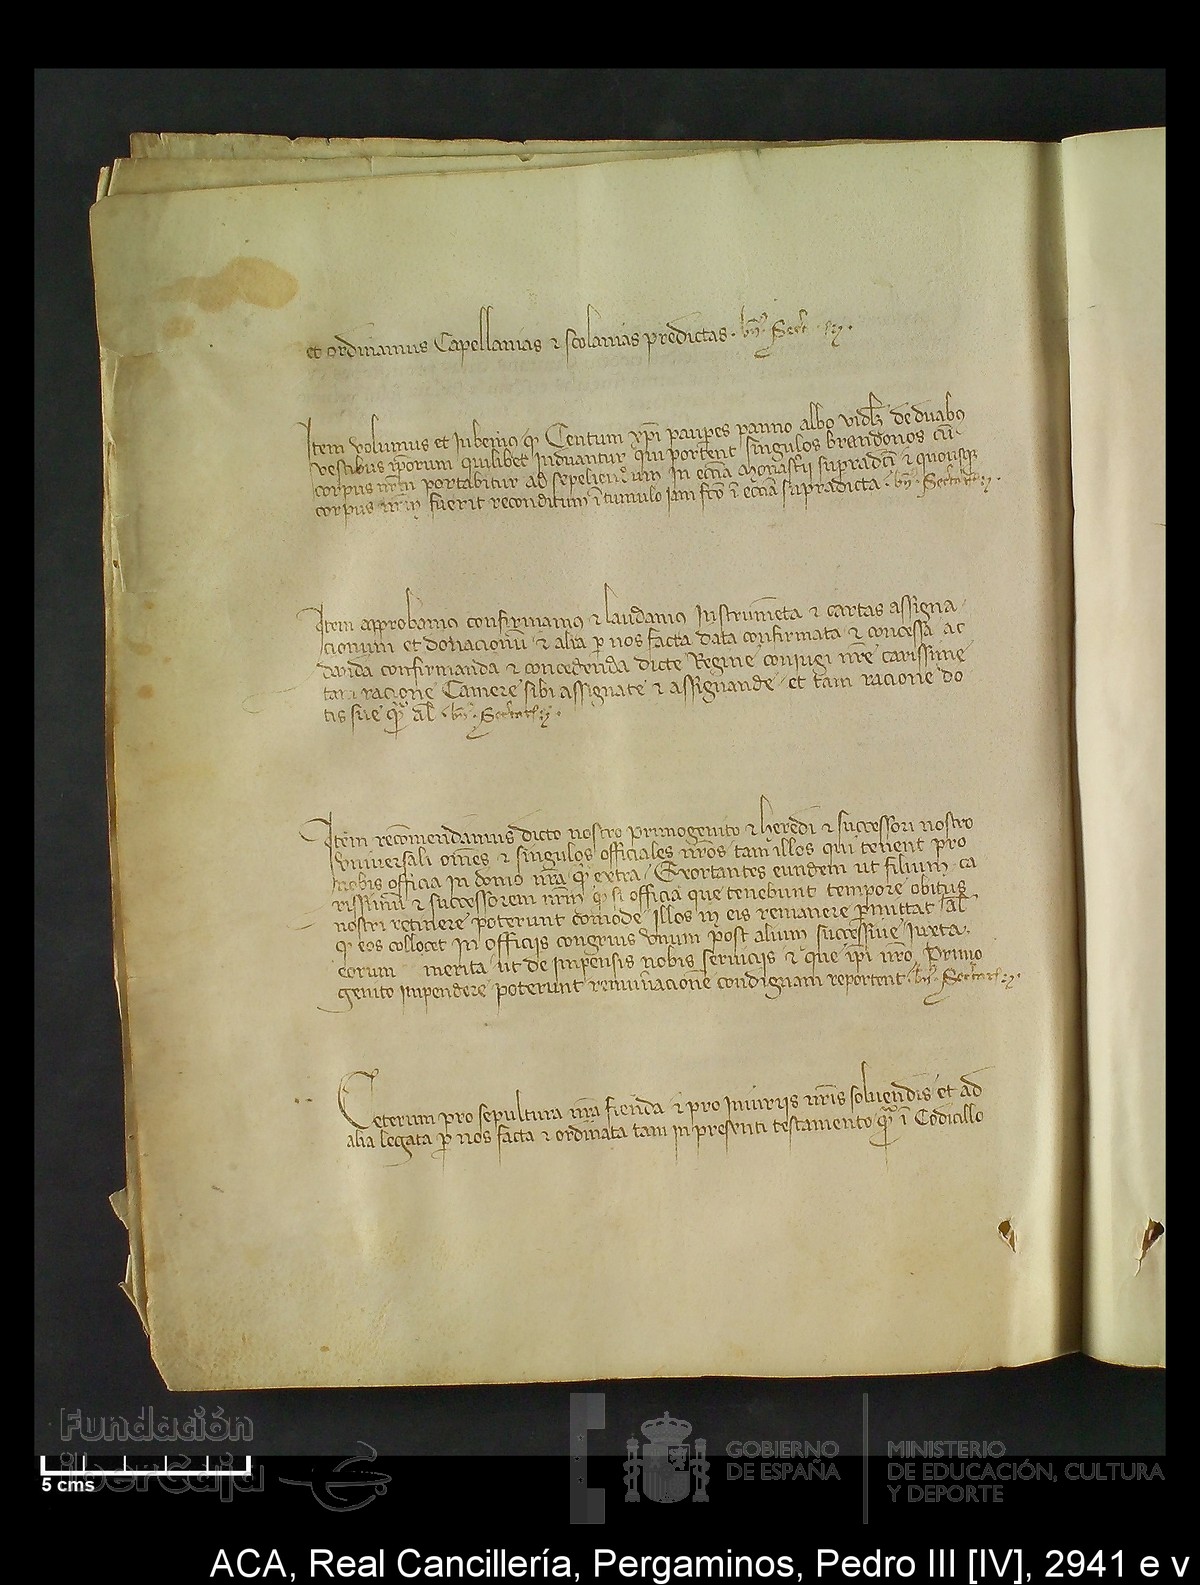 et ordinamus Capellanias & scolanias predictas. bn͂. Secr
Item volumus et Iubemus qd Centum xpi pauperes panno albo vidlz de duabus
vestibus ip̄orum quilibet Induantur qui portent singulos brandonos cū
corpus nr̄m portabitur ad sepeliend um In ecc̄ia Monasterii supradcī & quousque
corpus nr̄m fuerit reconditum ī tumulo iam fcō ī ecc̄ia supradicta
Item approbamus confirmamus & laudamus Instrumēta & cartas assigna
cionum et donacionū & alia p nos facta data confirmata & concessa ac
danda confirmanda & concedenda dicte Regine coniugi nr̄e carissime
tam racione Camere sibi assignate & assignande et tam racione do
tis sue qm̄ al̄
Item recōmendamus dicto nostro primogenito & heredi & successori nostro
vniuersali om̄es & singulos officiales nr̄os tam illos qui tenent pro
nobis officia in domo nr̄a qm̄ extra. Exortantes eundem ut filium ca
rissimū & successorem nr̄m qd si officia que tenebunt tempore obitus
nostri retinere poterunt cōmode illos in eis remanere pmittat al̄
qd eos collocet in officijs congruis vnum post alium successiue iuxta
eorum merita ut de impensis nobis seruicijs & que ip̄i nr̄o Primo
genito impendere poterunt remun̄acionē condignam reportent
Ceterum pro sepultura nr̄a fienda & pro Iniurijs nr̄is soluendis et ad
alia legata p nos facta & ordinata tam in presenti testamento qm̄ ī Codicillo
Fundación
iberCaja
5 cms
GOBIERNO
DE ESPAÑA
MINISTERIO
DE EDUCACIÓN, CULTURA
Y DEPORTE
ACA, Real Cancillería, Pergaminos, Pedro III [IV], 2941 e v